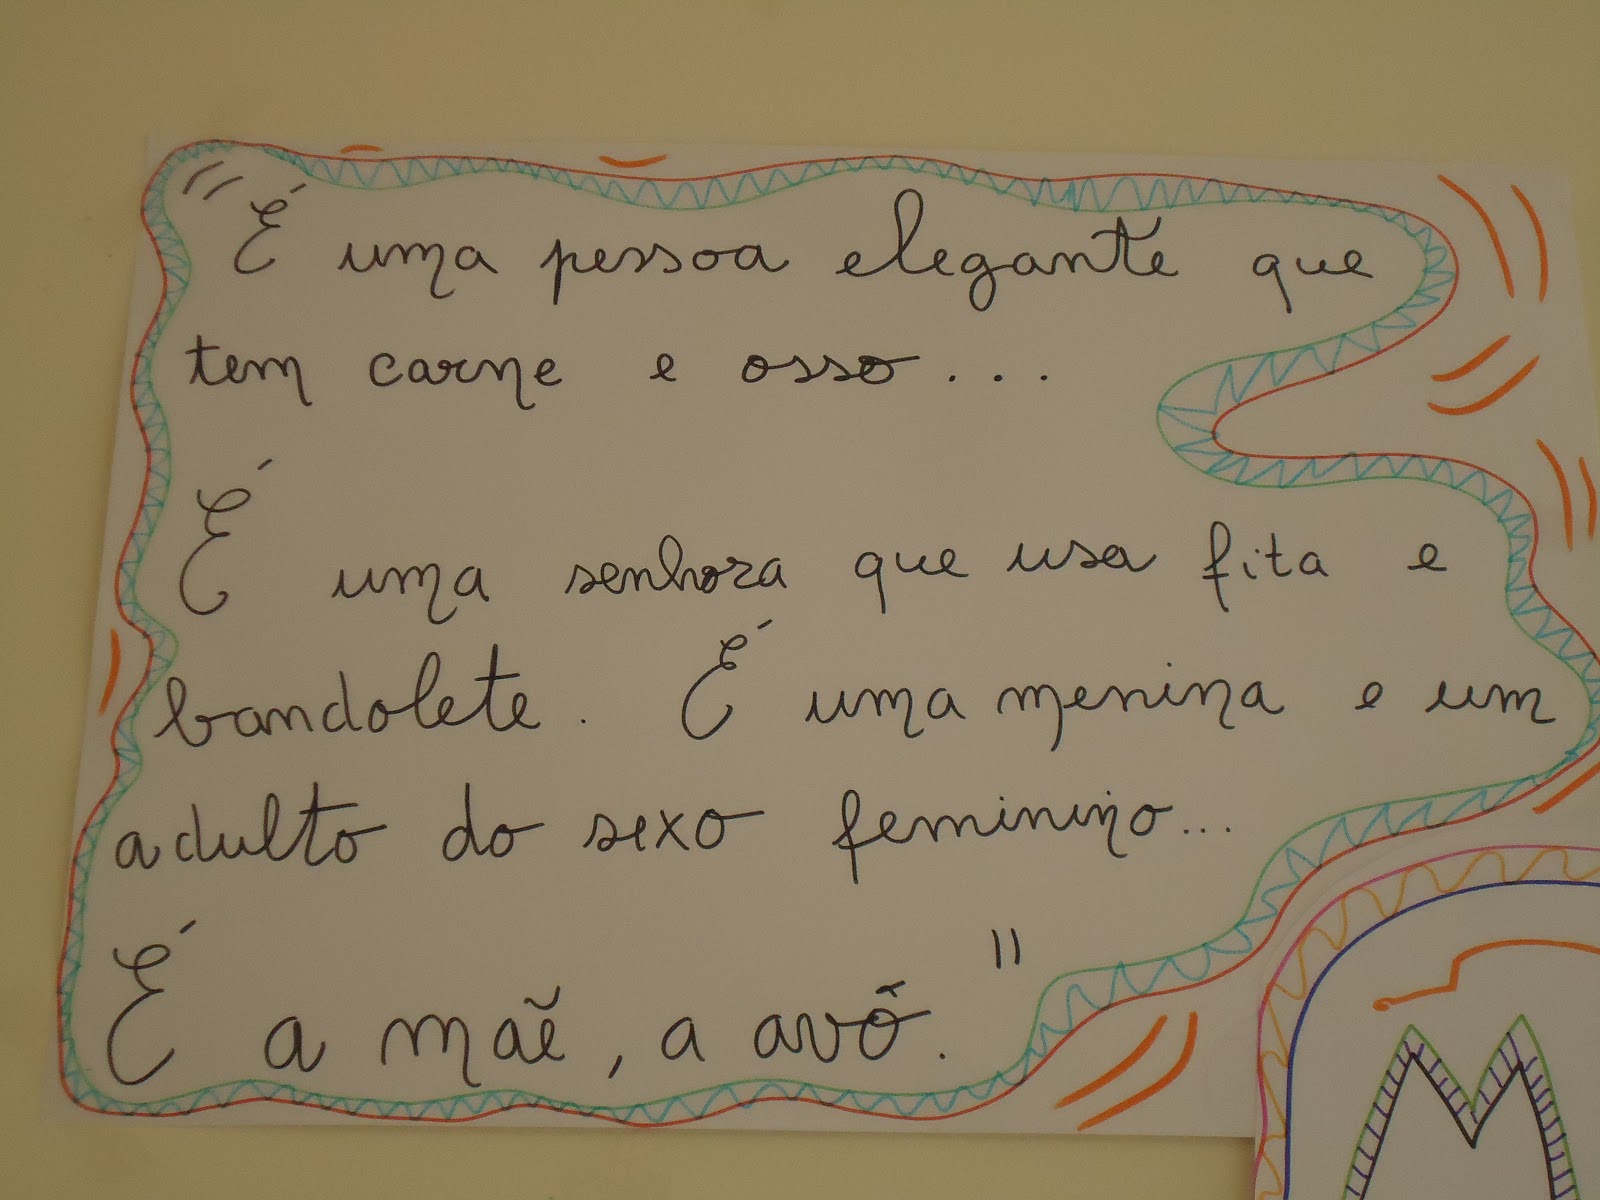 "É uma pessoa elegante que
tem carne e osso...
É uma senhora que usa fita e
bandolete. É uma menina e um
adulto do sexo feminino...
É a mãe, a avô."
M